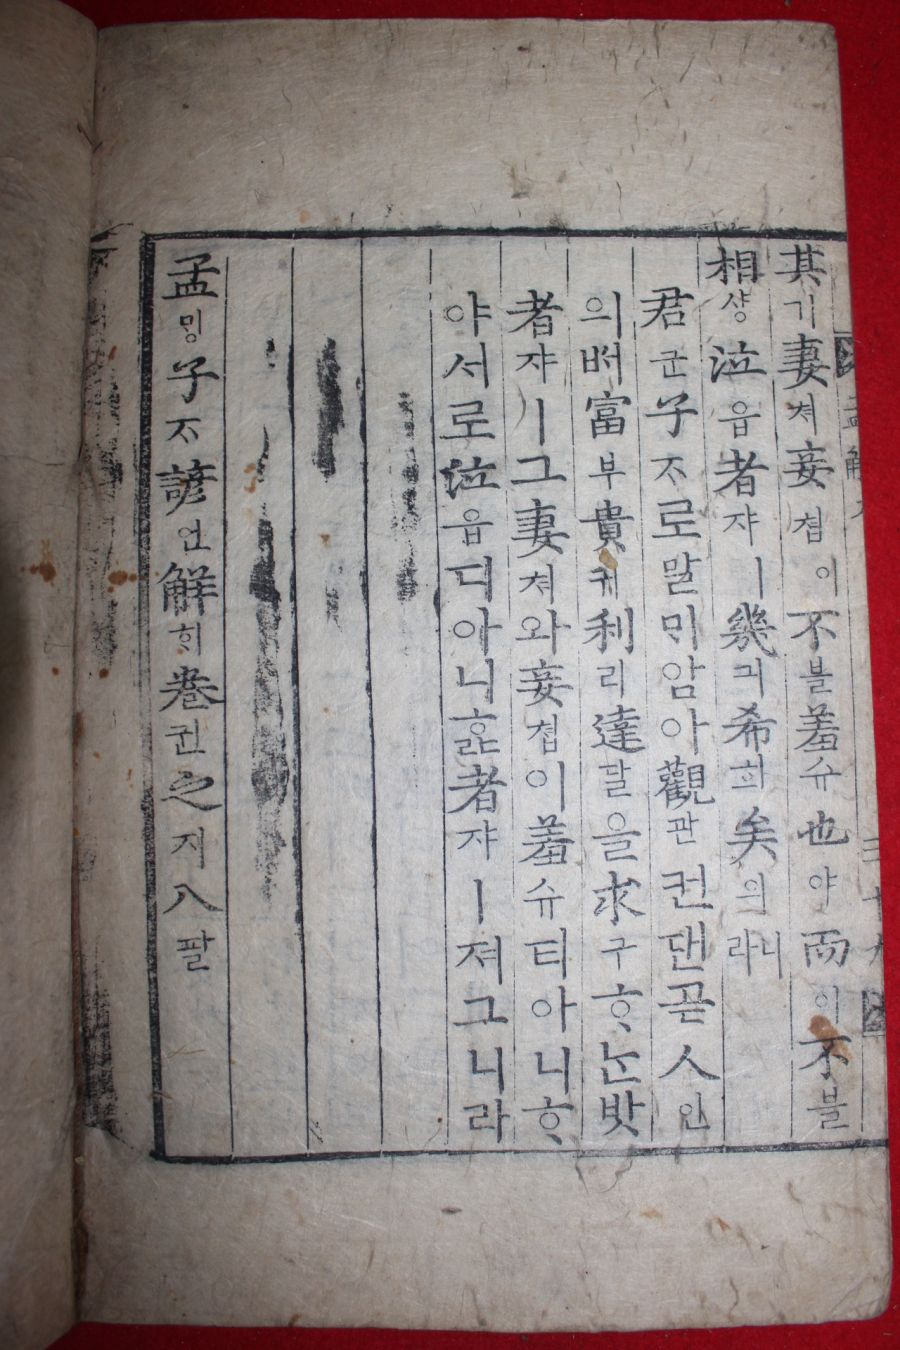 其기妻쳐妾쳡이不블羞슈也야而이不블
相샹泣읍者쟈ㅣ幾긔希희矣의니라
君군子ᄌᆞ로말ᄆᆡ암아觀관컨댄곧人인
의ᄡᅥ富부貴귀利리達달을求구ᄒᆞ논밧
者쟈ㅣ그妻쳐와妾쳡이羞슈티아니ᄒᆞ
야서로泣읍디아니ᄒᆞᆯ者쟈ㅣ져그니라
孟ᄆᆡᆼ子ᄌᆞ諺언解ᄒᆡ卷권之지八팔